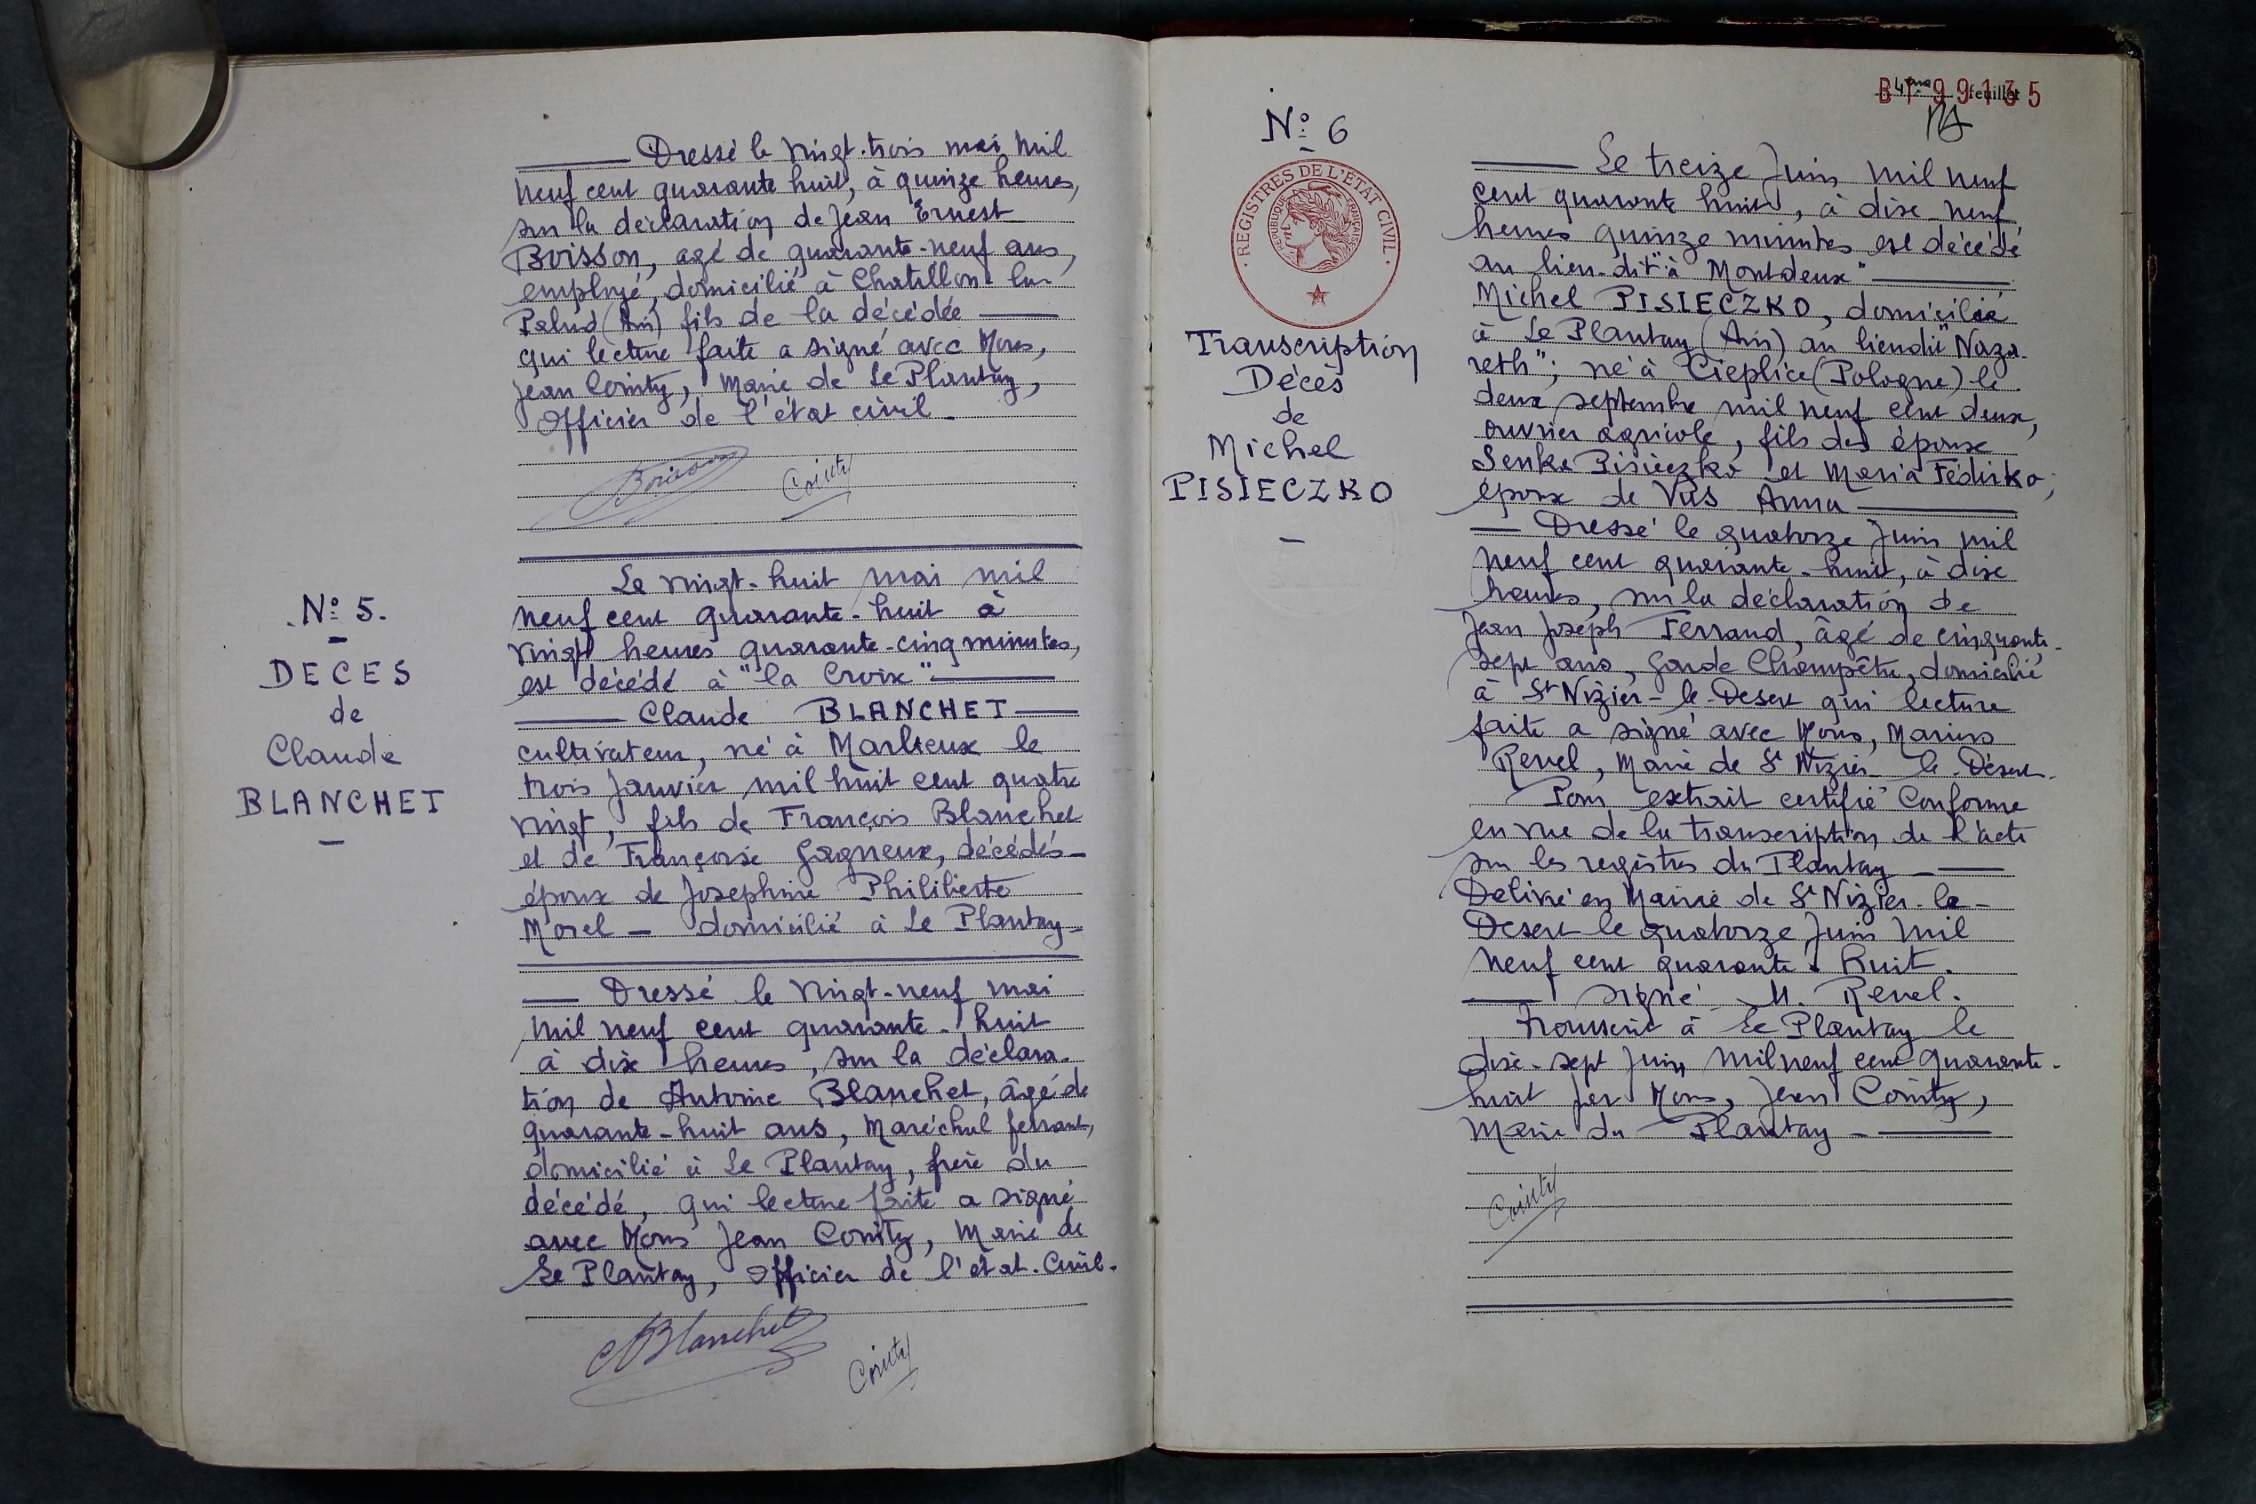 Dressé le vingt-trois mai mil
neuf cent quarante huit, à quinze heures,
sur la déclaration de Jean Ernest
Boisson, agé de quarante-neuf ans,
employé, domicilié à Chatillon la
Palud (Ain) fils de la décédée
qui lecture faite a signé avec Nous,
Jean Cointy, Maire de Le Plantay,
Officier de l'état civil.
Boisson Cointy
N° 5.
DECES
de
Claude
BLANCHET
Le vingt-huit mai mil
neuf cent quarante-huit à
vingt heures quarante-cinq minutes,
est décédé à "la Croix"
Claude BLANCHET
cultivateur, né à Marlieux le
trois Janvier mil huit cent quatre
vingt, fils de François Blanchet
et de Françoise Gagneux, décédés
époux de Josephine Philiberte
Morel - domicilié à Le Plantay
Dressé le vingt-neuf mai
mil neuf cent quarante-huit
à dix heures, sur la déclara-
tion de Antoine Blanchet, âgé de
quarante-huit ans, Maréchal ferrant,
domicilié à Le Plantay, frère du
décédé, qui lecture faite a signé
avec Nous Jean Cointy, Maire de
Le Plantay, Officier de l'état-Civil.
ABlanchet Cointy
4ème feuillet
B 199135
N° 6
REGISTRES DE L'ÉTAT CIVIL
REPUBLIQUE FRANÇAISE
Transcription
Décès
de
Michel
PISIECZKO
Le treize Juin mil neuf
cent quarante huit, à dix-neuf
heures quinze minutes est décédé
au lieu-dit "à Montdeux"
Michel PISIECZKO, domicilié
à Le Plantay (Ain) au lieudit "Naza-
reth"; né à Cieplice (Pologne) le
deux septembre mil neuf cent deux,
ouvrier agricole, fils des époux
Senke Pisieczko et Maria Féduiko;
époux de Vus Anna
Dressé le quatorze Juin mil
neuf cent quarante-huit, à dix
heures, sur la déclaration de
Jean Joseph Ferrand, âgé de cinquante-
sept ans, Garde Champêtre, domicilié
à St Nizier-le-Desert qui lecture
faite a signé avec Nous, Marius
Revel, Maire de St Nizier-le-Désert.
Pour extrait certifié conforme
en vue de la transcription de l'acte
sur les registres du Plantay
Délivré en Mairie de St Nizier-le-
Desert le quatorze Juin Mil
neuf cent quarante-huit.
signé M. Revel.
Transcrit à Le Plantay le
dix-sept juin mil neuf cent quarante-
huit par Nous, Jean Cointy,
Maire du Plantay
Cointy